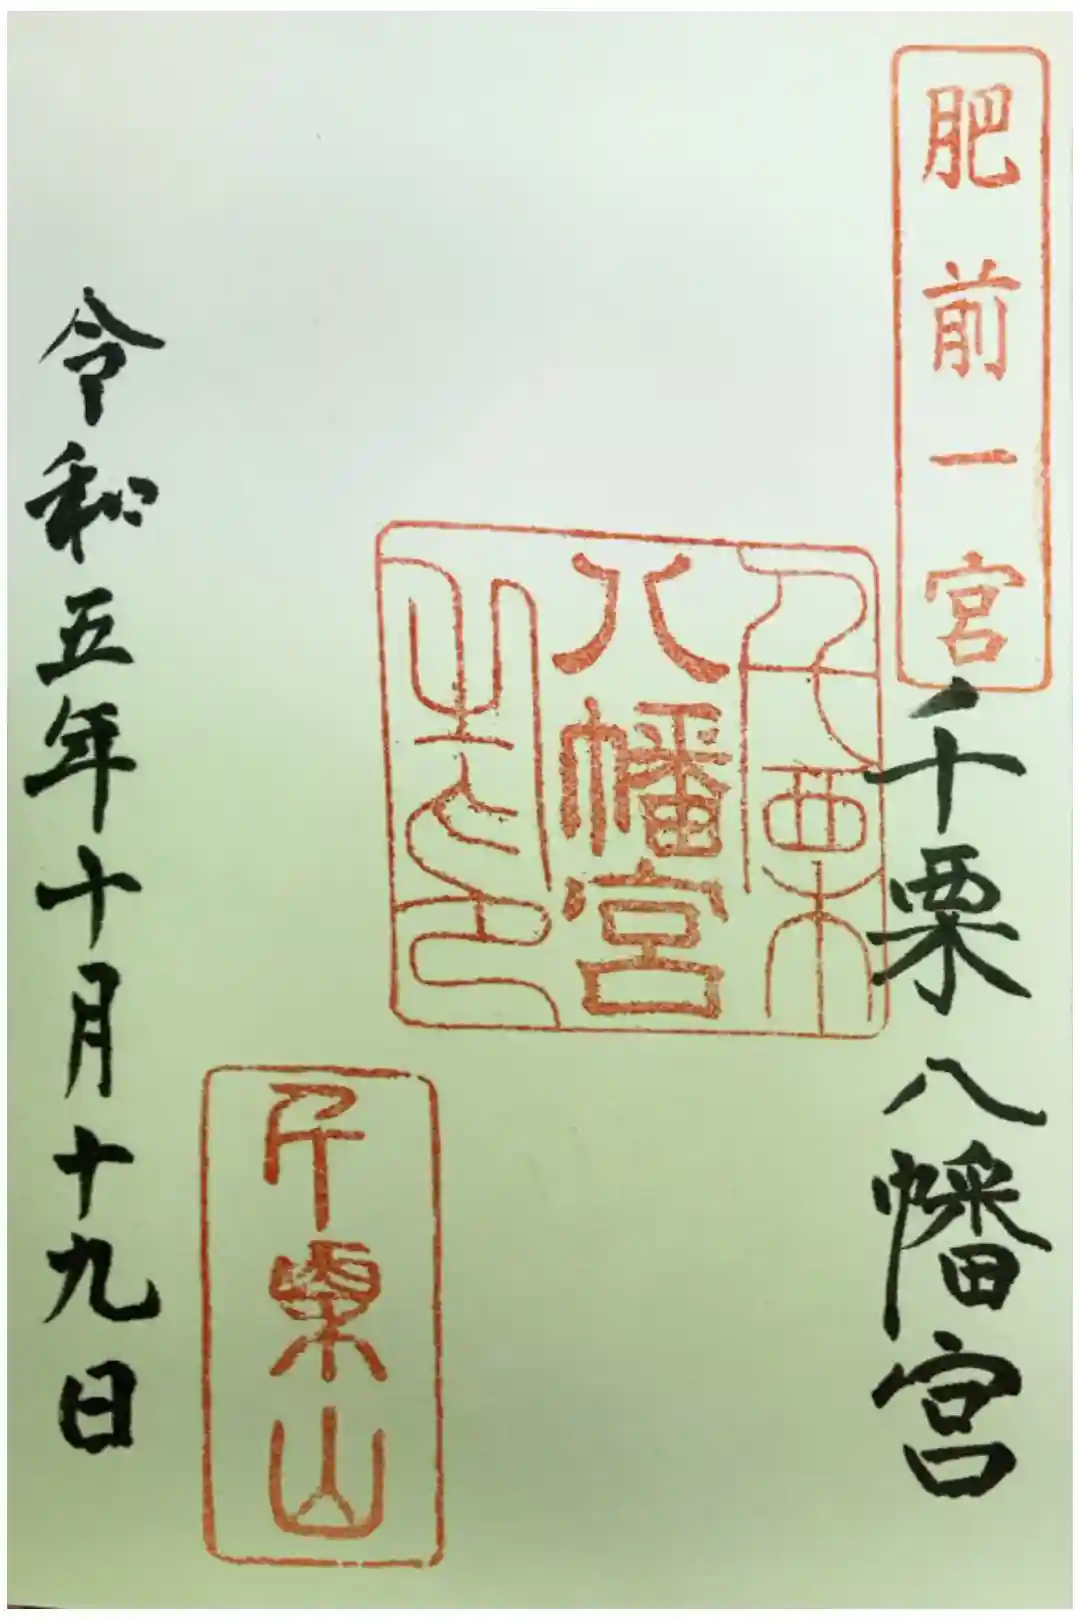 肥前一宮
千栗八幡宮
千栗
八幡宮
之印
千栗山
令和五年十月十九日